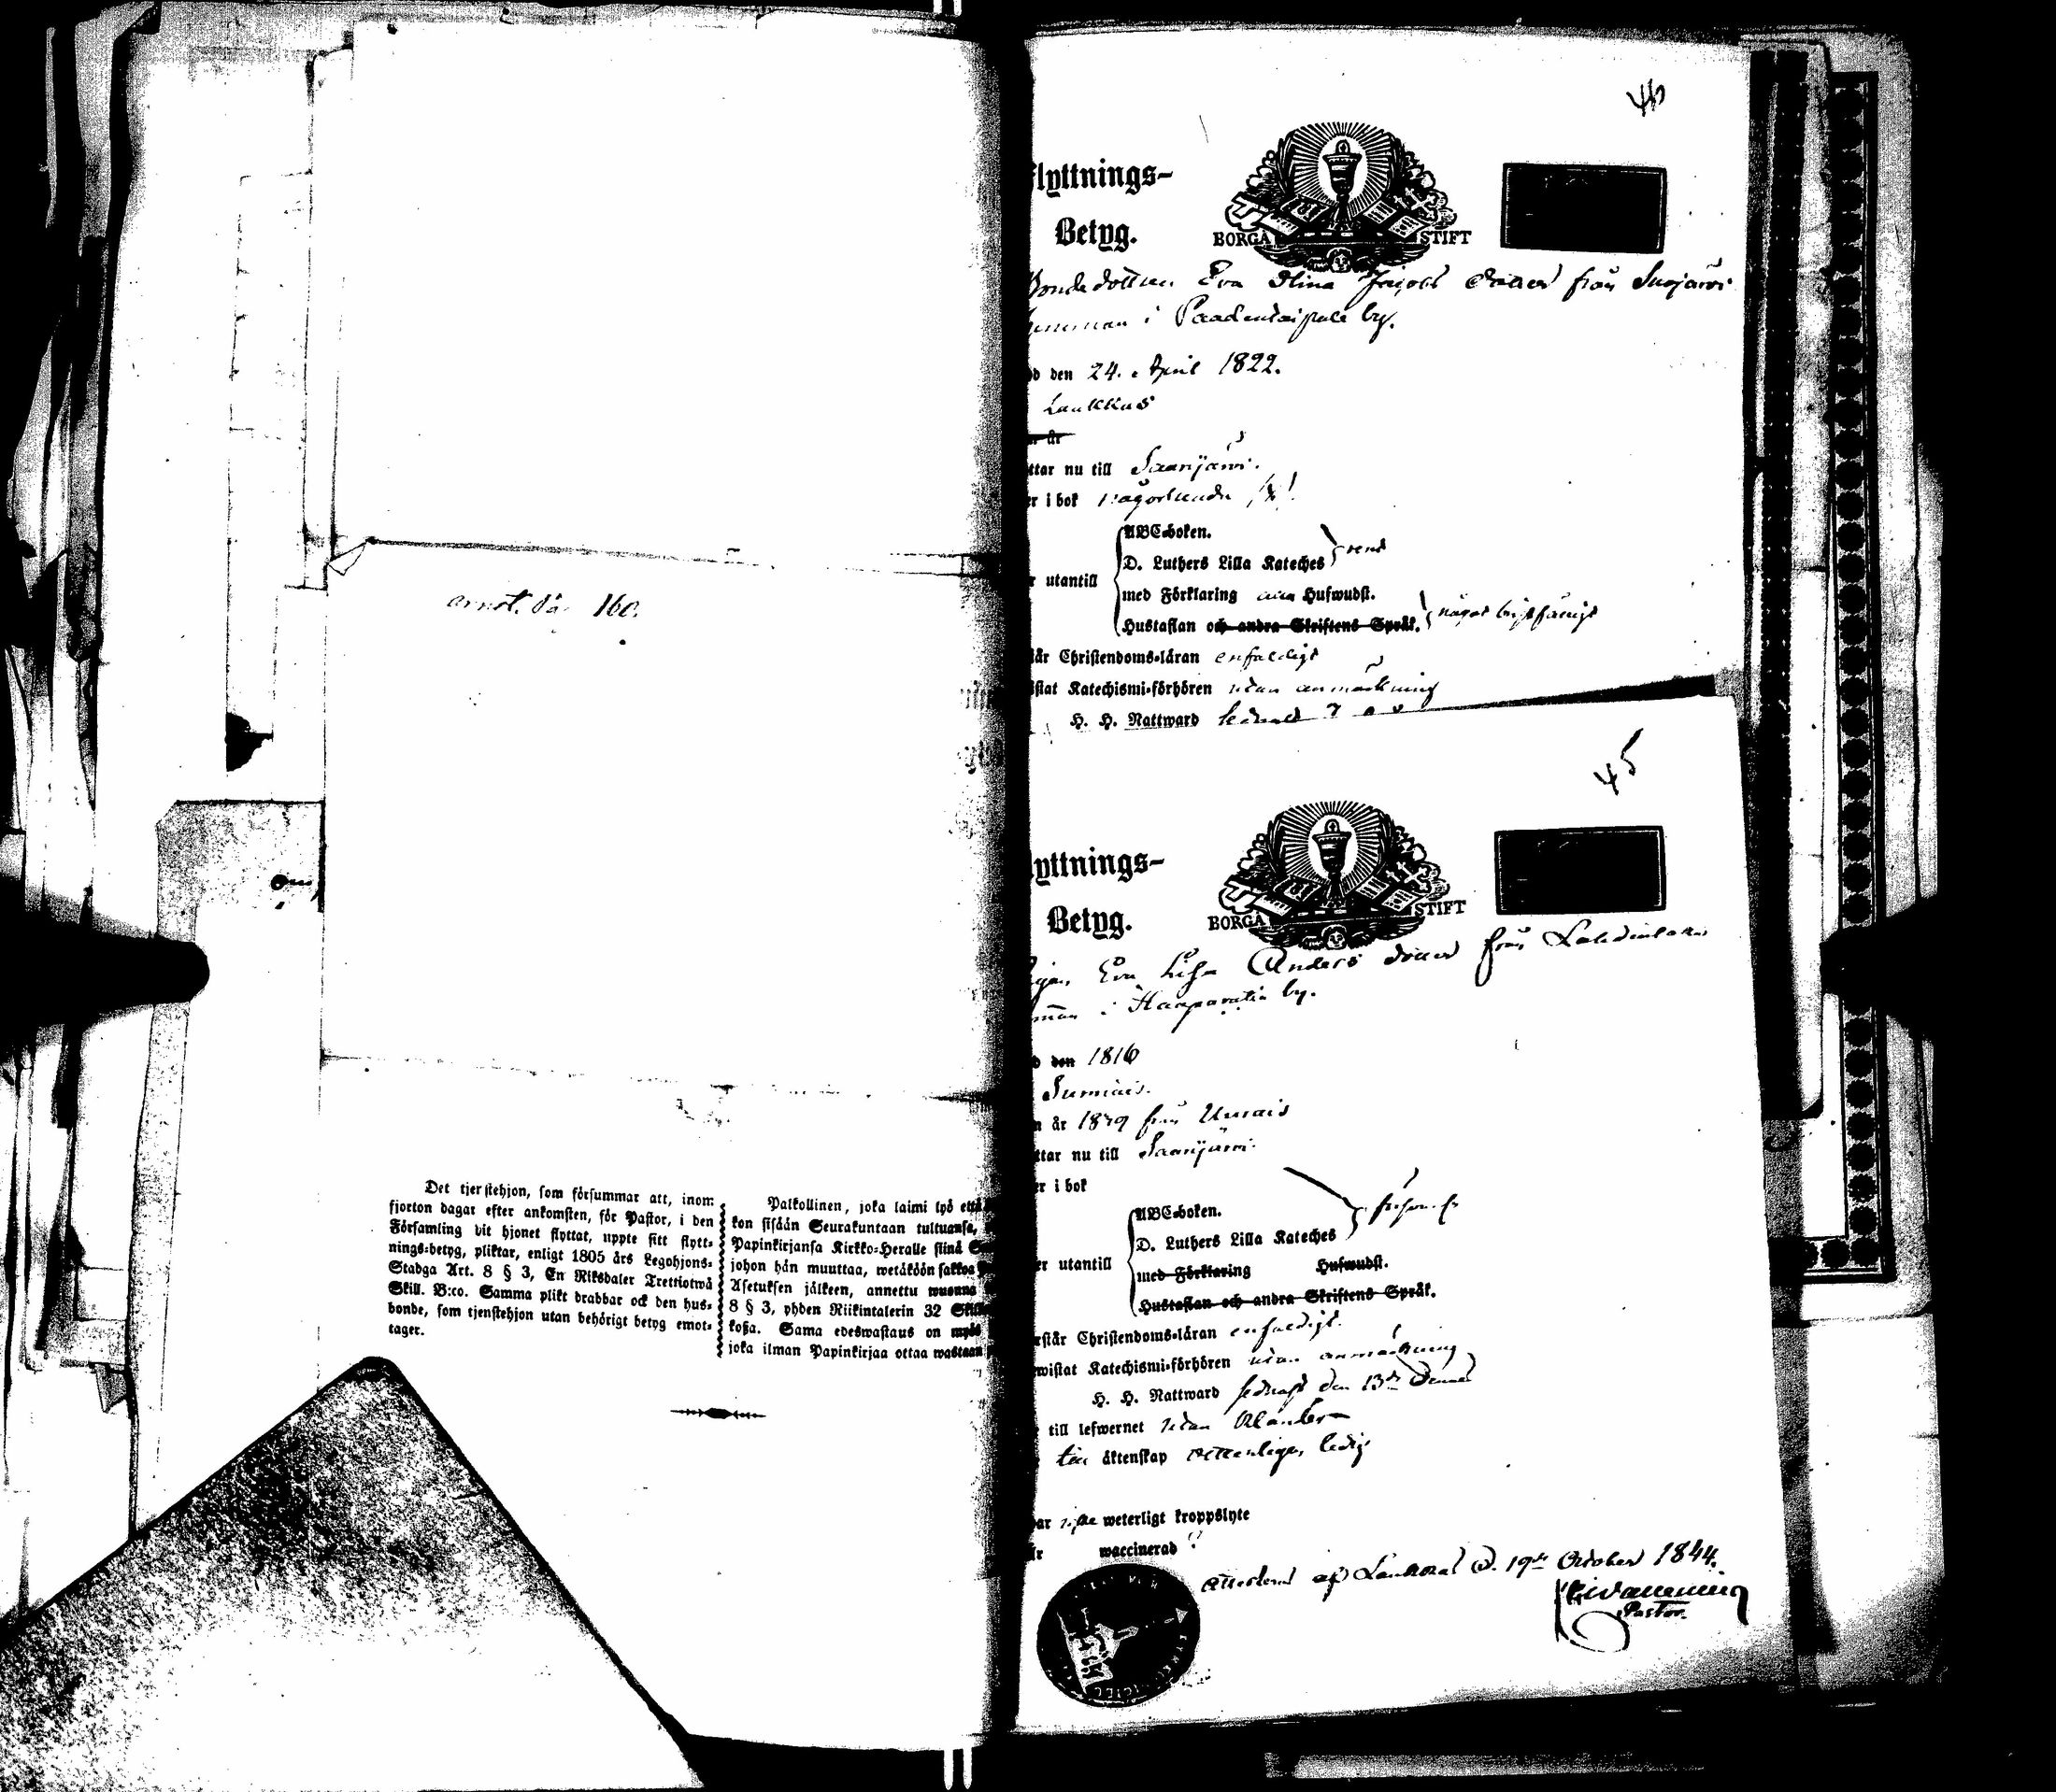 annot. då 160.
Det tjenstehjon, som försummar att, inom
fjorton dagar efter ankomsten, för Pastor, i den
Församling dit hjonet flyttat, uppte sitt flytt-
nings-betyg, pliktar, enligt 1805 års Legohjons-
Stadga Art. 8 § 3, En Riksdaler Trettiotwå
Skill. B:co. Samma plikt drabbar ock den hus-
bonde, som tjenstehjon utan behörigt betyg emot-
tager.
Palkollinen, joka laimi lyö että
kon sisään Seurakuntaan tultuansa,
Papinkirjansa Kirkko-Heralle siinä
johon hän muuttaa, wetäköön sakkoa
Asetuksen jälkeen, annettu wuonna
8 § 3, yhden Riikintalerin 32
koßa. Sama edeswastaus on myös
joka ilman Papinkirjaa ottaa wastaan
45
flyttnings-
Betyg.
BORGÅ STIFT
Bondedottren Eva Stina Jacobs dotter från Suojärvi
hemman i Paadentaipale by.
den 24. April 1822.
Laukkas
år
ttar nu till Saarijärvi.
i bok någorlunda
ABC-boken.
D. Luthers Lilla Kateches rent
utantill
med Förklaring Hufwudst.
Hustaflan och andra Skriftens Språk. något bristfälligt
år Christendoms-läran enfaldigt
istat Katechismi-förhören utan anmärkning
H. H. Nattward sednast
45
lyttnings-
Betyg.
BORGÅ STIFT
Eva Lisa Anders dotter från
i Haapavatia by.
den 1816
Sumiais.
år 1839 från Uurais
ttar nu till Saarijärvi.
i bok
ABC-boken.
D. Luthers Lilla Kateches försvarl.
utantill
med Förklaring Hufwudst.
Hustaflan och andra Skriftens Språk.
rstår Christendoms-läran enfaldigt.
wistat Katechismi-förhören utan anmärkning
H. H. Nattward sednast den 13de Dennes
till lefwernet utan klander
till äktenskap ledig
ar icke weterligt kroppslyte
är waccinerad ?
attesterad af Laukkas d. 19de October 1844.
Pastor.